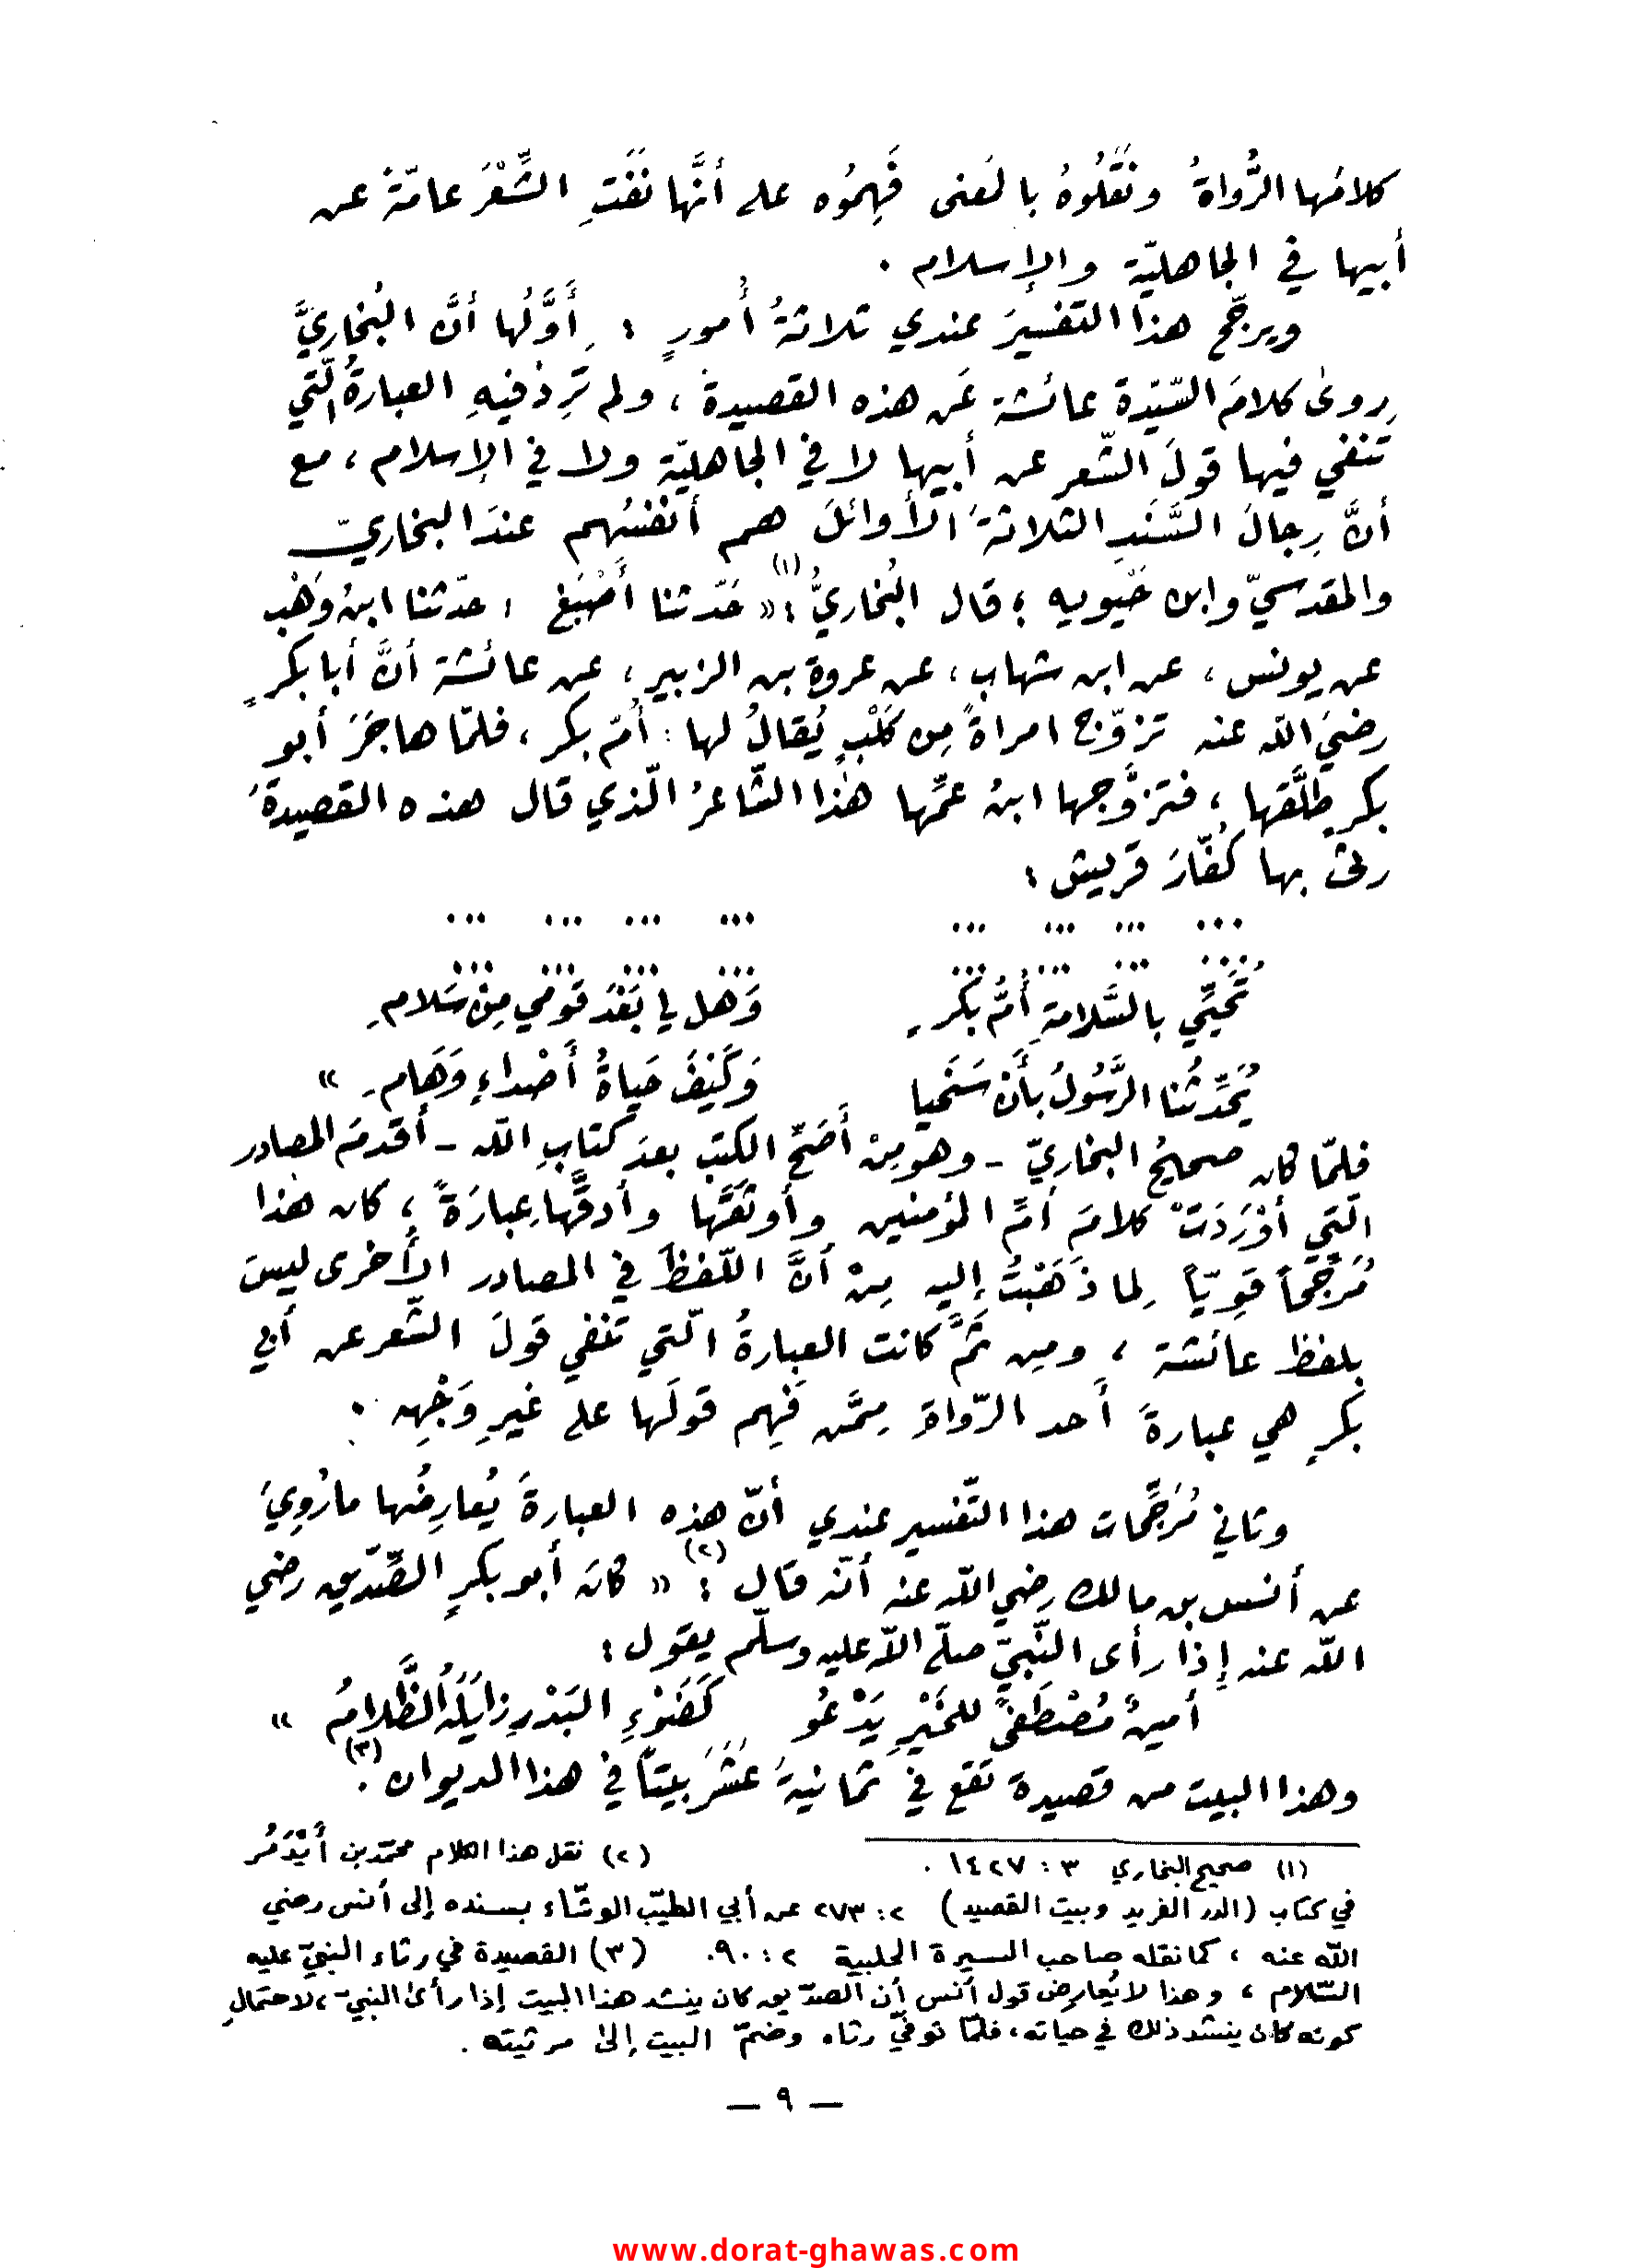 كلامَها الرُّواةُ ونَقَلُوهُ بالمَعنى فَهِمُوه على أنَّها نَفَتِ الشِّعْرَ عامّةً عن
أبيها في الجاهليّة والإسلام .
ويرجّح هذا التفسيرَ عندي ثلاثةُ أُمورٍ : أَوَّلُها أنَّ البُخارِيَّ
روى كلامَ السّيّدة عائشة عَن هذه القصيدة ، ولم تَرِدْ فيهِ العبارةُ الّتي
تَنفي فيها قولَ الشّعر عن أبيها لا في الجاهليّة ولا في الإسلام ، مع
أنَّ رِجالَ السَّنَدِ الثلاثةَ الأوائلَ هم أنفسُهم عندَ البخاريّ
والمقدسيّ وابن حَيّويه ؛ قال البُخاريُّ (١): « حَدّثنا أَصْبَغ ، حدّثنا ابنُ وَهْب
عن يونس ، عن ابن شهاب ، عن عروة بن الزبير ، عن عائشة أنَّ أبا بكرٍ
رضيَ اللّه عنه تزوّج امرأةً مِن كَلْبٍ يُقالُ لها : أُمّ بكر ، فلمّا هاجَرَ أبو
بكرٍ طلَّقها ، فتزوَّجها ابنُ عمِّها هٰذا الشّاعرُ الّذي قال هذه القصيدةَ
رثى بها كُفّارَ قريش :
... ... ... ... ... ... ... ...
... ... ... ... ... ... ... ...
تُحَيِّي بالسَّلامةِ أُمُّ بَكْرٍ وَهل لي بَعْدَ قَومي مِنْ سَلامِ
يُحَدِّثُنا الرَّسُولُ بأَنْ سَنَحيا وَكَيْفَ حَياةُ أَصْداءٍ وَهَامِ »
فلمّا كان صحيحُ البخاريّ - وهو مِنْ أَصَحِّ الكتب بعدَ كتابِ اللّه - أقدمَ المصادر
الّتي أوْرَدَتْ كلامَ أمِّ المؤمنين وأوثَقَها وأدقَّها عبارَةً ، كان هٰذا
مُرَجِّحاً قَوِيّاً لِما ذَهَبْتُ إليه مِنْ أنَّ اللّفظَ في المصادر الأخرى ليسَ
بلفظ عائشة ، ومِن ثَمَّ كانت العبارةُ الّتي تنفي قولَ الشّعر عن أبي
بكرٍ هي عبارةَ أحد الرّواة مِمَّن فَهِم قولَها على غيرِ وَجْهِه .
وثاني مُرَجِّحات هذا التّفسير عندي أنّ هذِه العبارةَ يُعارِضُها ما رُوِيَ
عن أنس بن مالك رضي اللّه عنه أنّه قال (٢): « كانَ أبو بكرٍ الصِّدّيق رضي
اللّه عنه إذا رأى النّبيّ صلّى اللّه عليه وسلّم يقول :
أَمينٌ مُصْطَفىً للخَيْرِ يَدْعُو كَضَوْءِ البَدْرِ زايَلَهُ الظَّلامُ »
وهذا البيت من قصيدة تقع في ثمانيةَ عَشَرَ بيتاً في هذا الديوان (٣).
(١) صحيح البخاري ٣ : ١٤٢٧ . (٢) نقل هذا الكلام محمّد بن أَيْدَمُر
في كتاب (الدر الفريد وبيت القصيد) ٢ : ٢٧٣ عن أبي الطيّب الوشّاء بسنده إلى أنس رضي
اللّه عنه ، كما نقله صاحب السيرة الحلبية ٢ : ٩٠. (٣) القصيدة في رثاء النبيّ عليه
السّلام ، وهذا لا يُعارِض قول أنس أن الصدّيق كان ينشد هذا البيت إذا رأى النبيّ ، لاحتمالِ
كونه كان ينشد ذلك في حياته ، فلمّا توفّي رثاه وضمّ البيت إلى مرثيته .
— ٩ —
www.dorat-ghawas.com